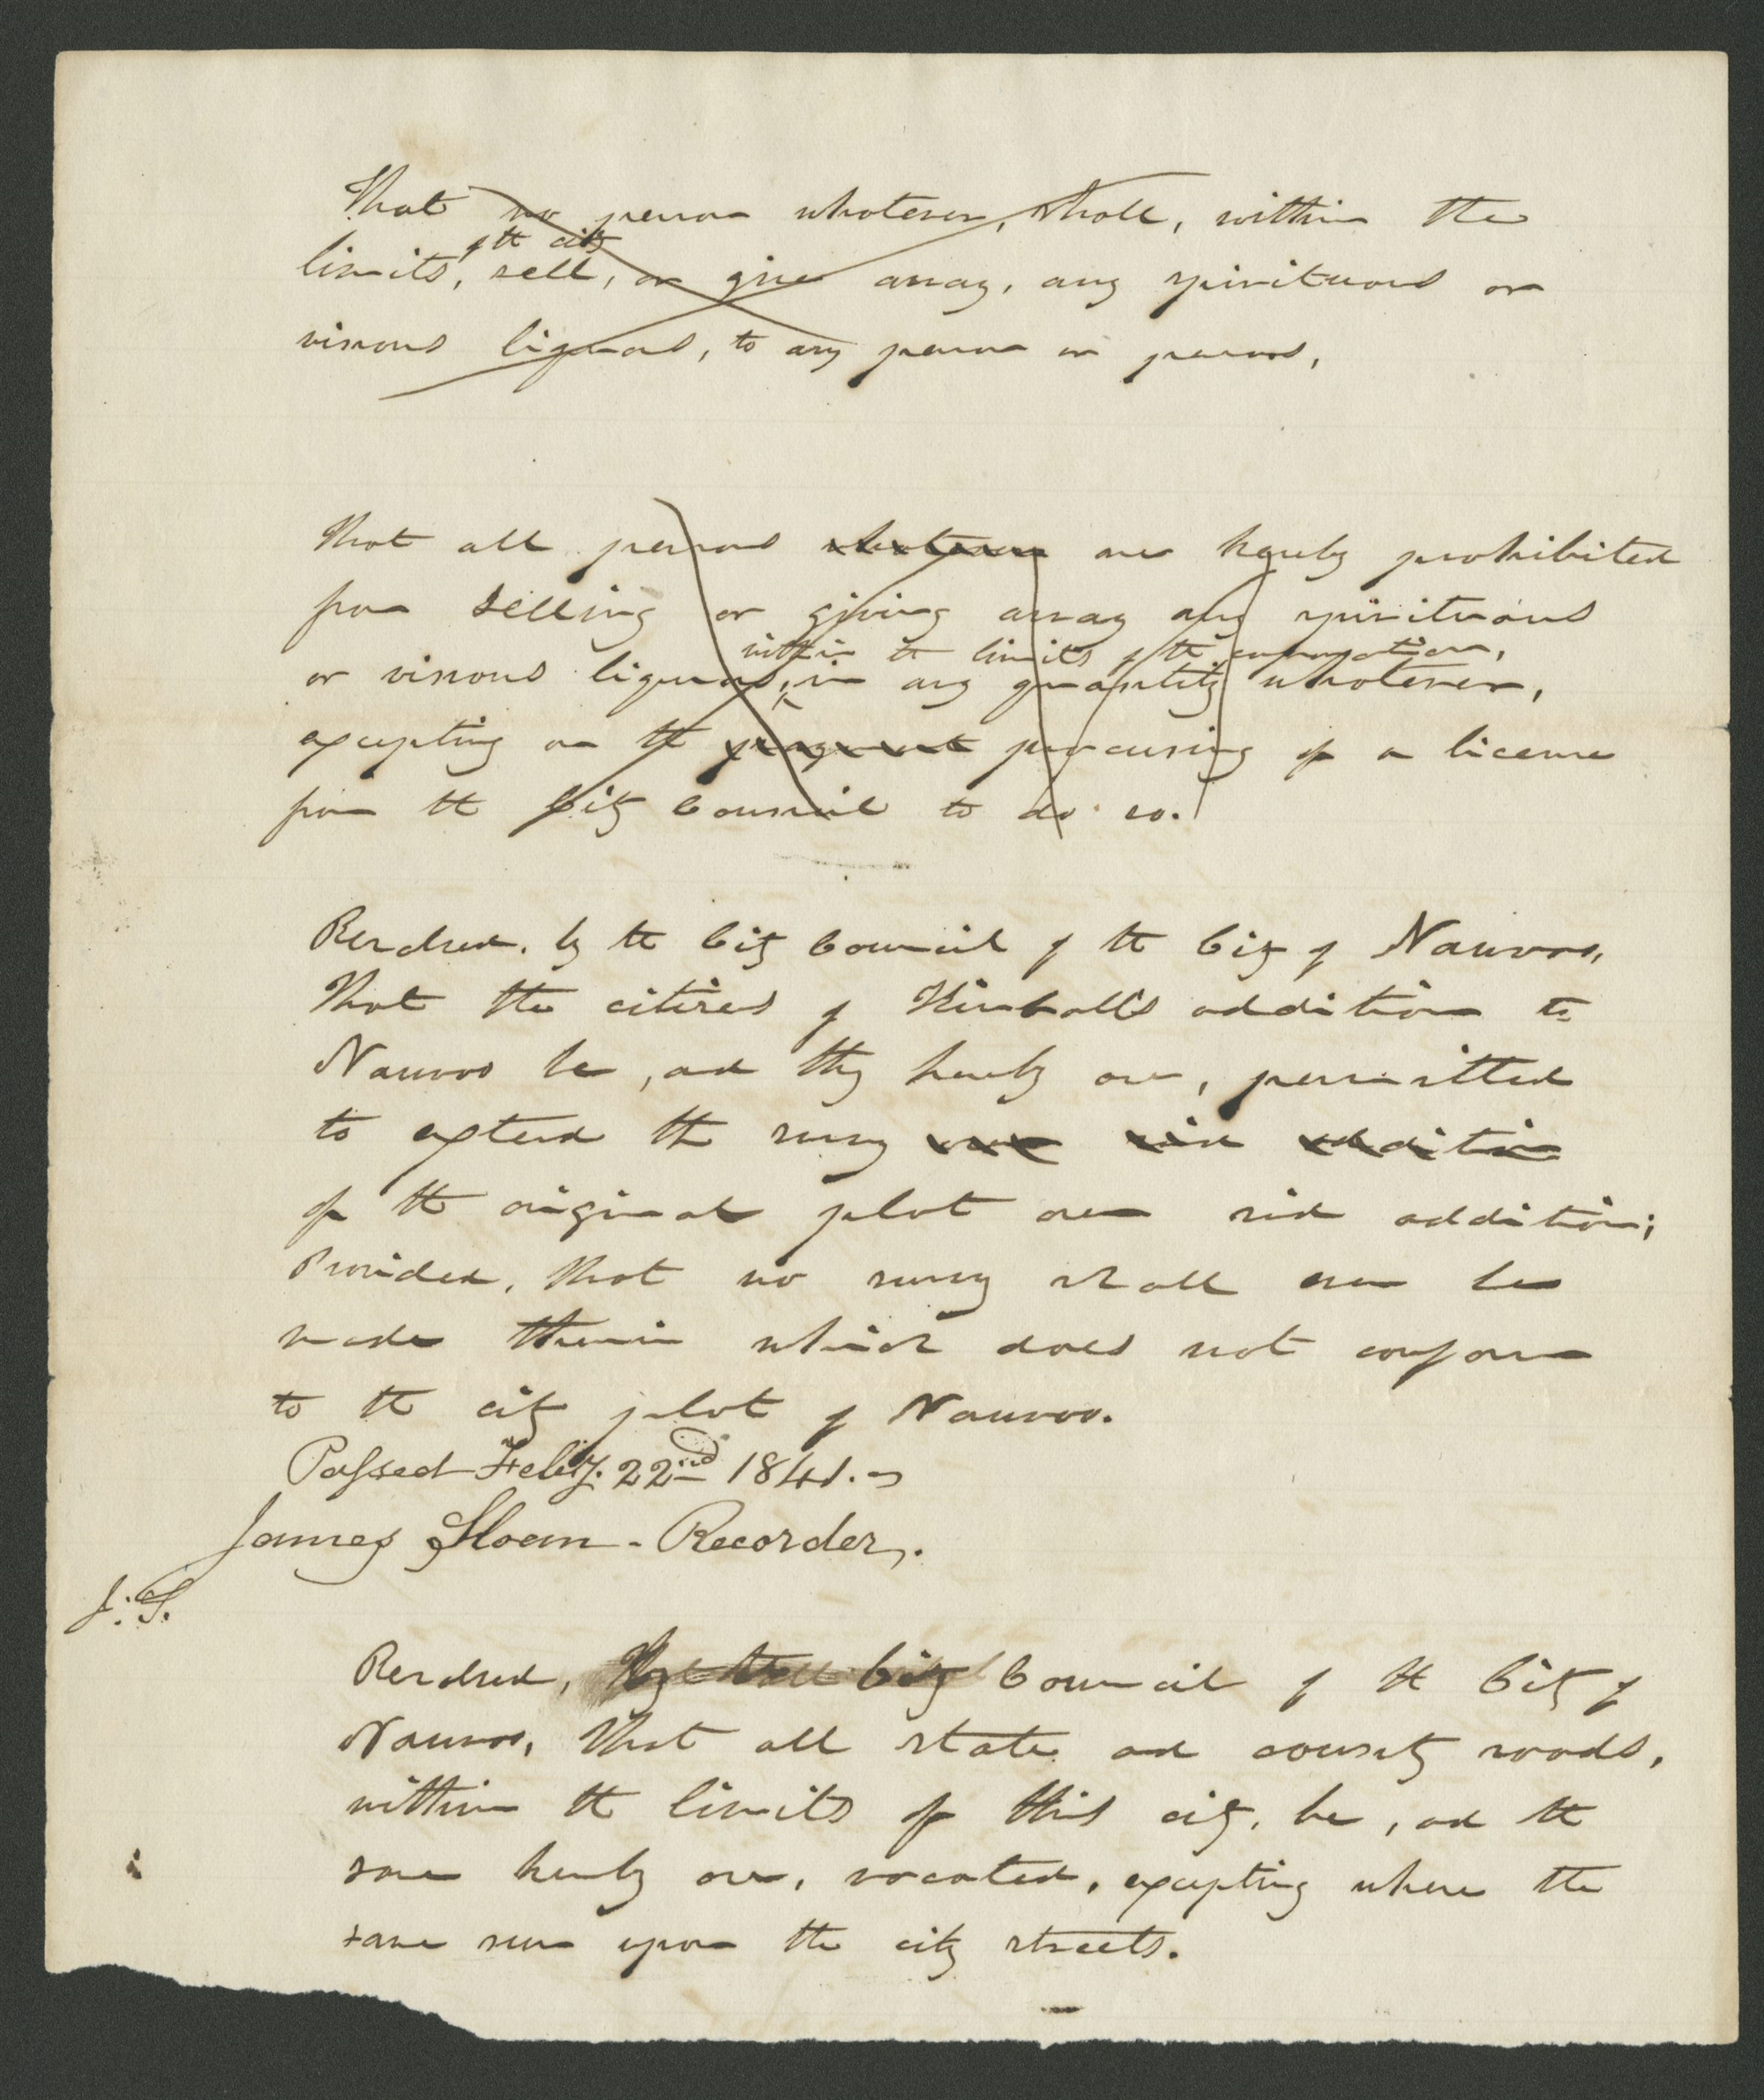 That no person whatever, shall, within the
of the city
limits, sell, or give away, any spirituous or
vinous liquors, to any person or persons,
That all persons whatever are hereby prohibited
from selling or giving away any spirituous
within the limits of the corporation,
or vinous liquors, in any quantity whatever,
excepting on the payment procuring of a license
from the City Council to do so.
Resolved, by the City Council of the City of Nauvoo,
That the citizens of Kimball's addition to
Nauvoo be, and they hereby are, permitted
to extend the survey over said addition
of the original plot over said addition;
Provided, that no survey shall ever be
made therein which does not conform
to the city plot of Nauvoo.
Passed Feby. 22nd 1841.
James Sloan - Recorder.
J. S.
Resolved, By the City Council of the City of
Nauvoo, That all state and county roads,
within the limits of this city, be, and the
same hereby are, vacated, excepting where the
same run upon the city streets.